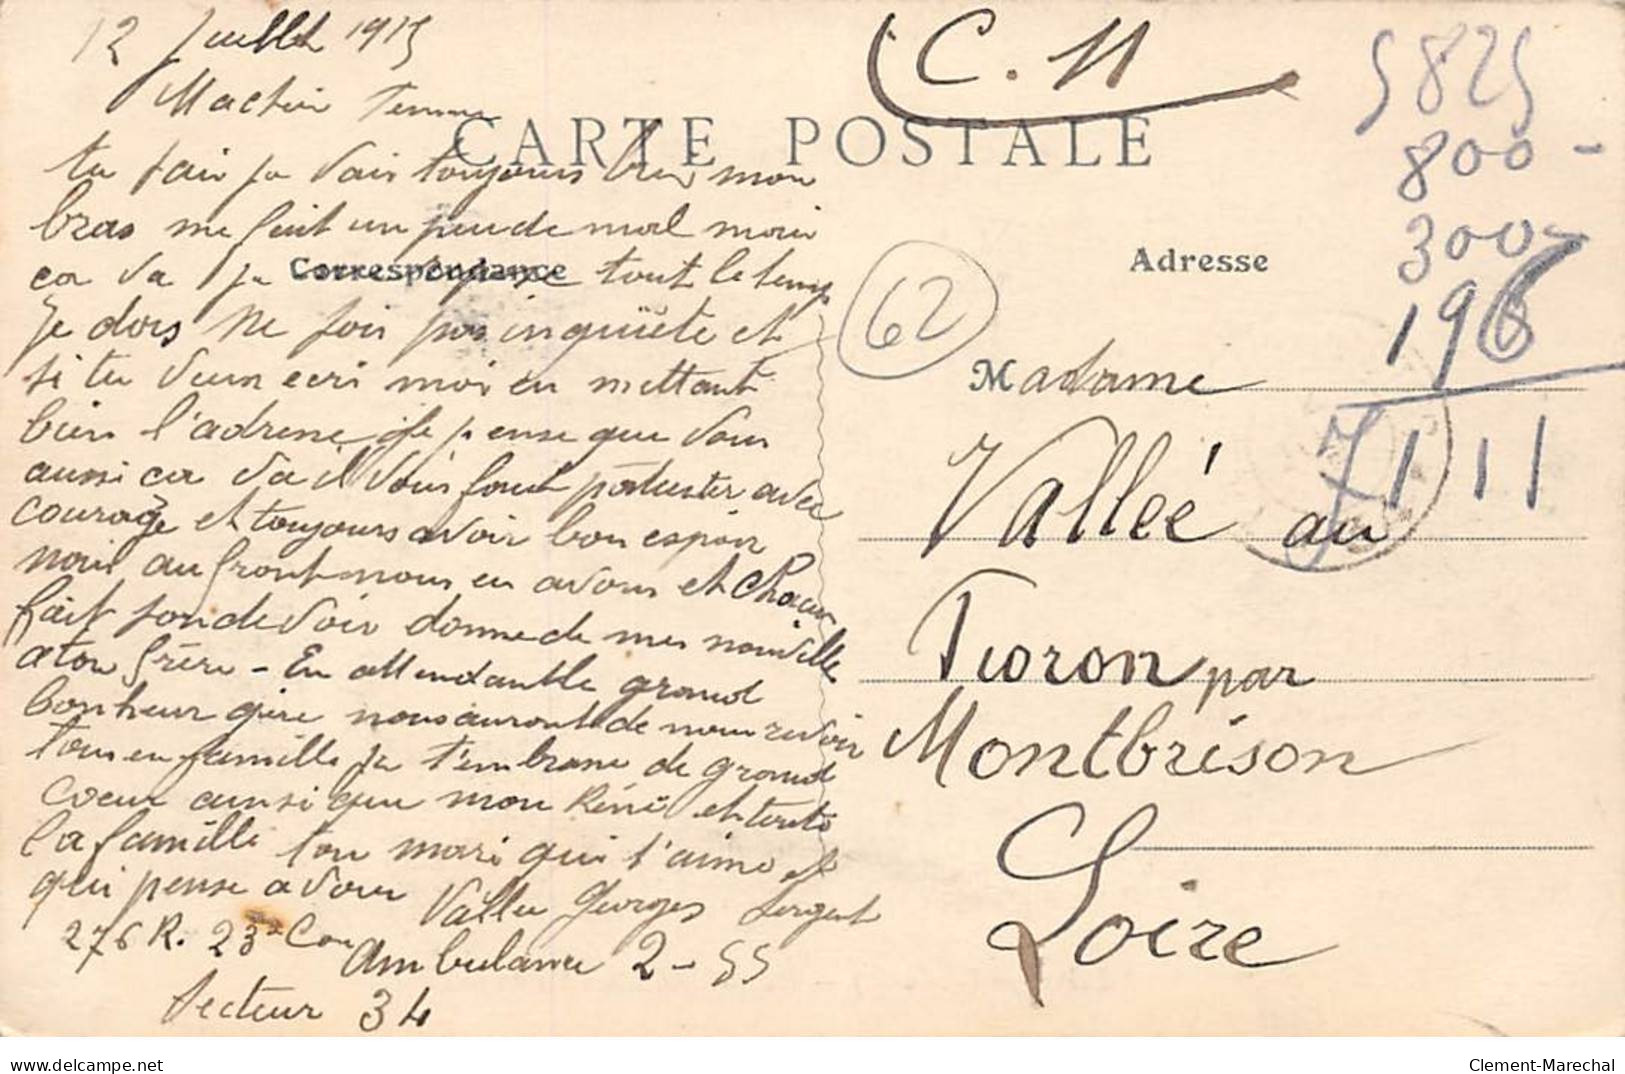 12 Juillet 1915
C. 11
5825
800 -
300 -
196
7111
62
CARTE POSTALE
Correspondance
Adresse
Ma chèr femme
tu sais je vais toujours bien mon
bras me fait un peu de mal mais
ca va je repose tout le temps
Je dors Ne sois pas inquiète et
si tu veux ecri moi en mettant
bien l'adresse Je pense que vous
aussi ca va il vous faut patienter avec
courage et toujours avoir bon espoir
nous au front nous en avons et chacun
fait son devoir donne de mes nouvelle
a ton frère - En attendant le grand
bonheur que nous auront de nous revoir
tous en famille je t'embrasse de grand
coeur ainsi que mon Réné et toute
la famille ton mari qui t'aime et
qui pense a vous Vallée Georges Sergent
276 R. 23e Cie
Ambulance 2 - 55
Secteur 34
Madame
Valleé au
Fioron par
Montbrison
Loire
delcampe.net
Clement-Marechal